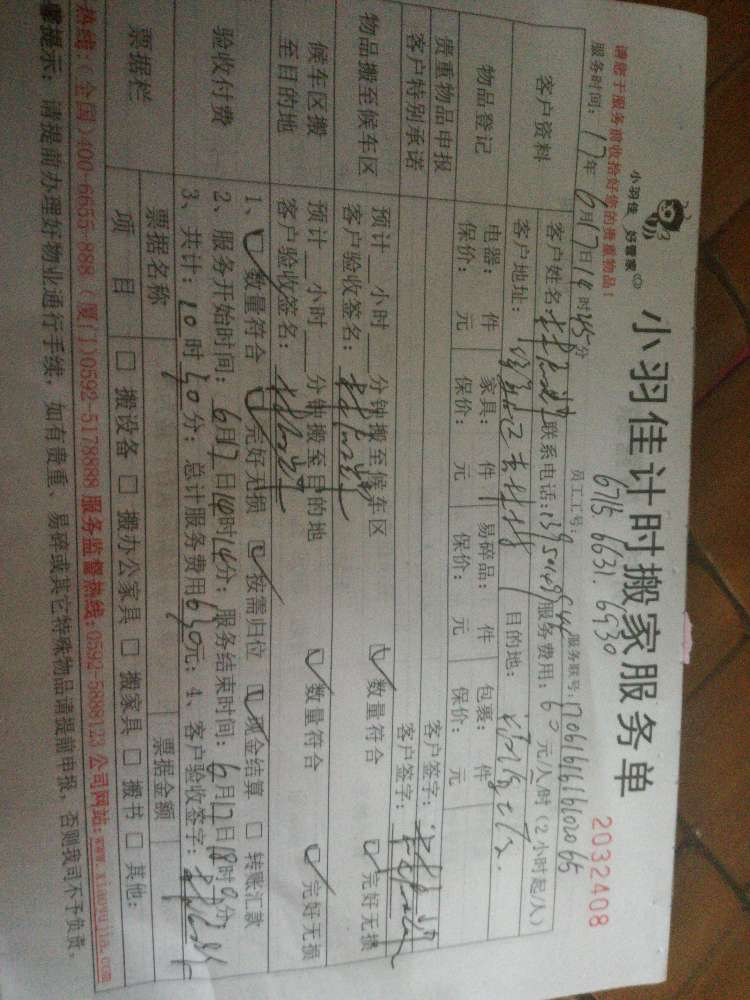 小羽佳 好管家
小羽佳计时搬家服务单
2032408
请您于服务前收拾好您的贵重物品！
员工工号：6715 6631. 6930
服务时间：17年6月17日14时45分
服务联号：
客户资料
客户姓名：
联系电话：
服务费用：60元/人/时（2小时起/人）
客户地址：
目的地：
物品登记
电器： 件 家具： 件 易碎品： 件 包裹： 件
保价： 元 保价： 元 保价： 元 保价： 元
贵重物品申报
客户签字：
客户特别承诺
客户签字：
物品搬至候车区
预计 小时 分钟搬至候车区
客户验收签名：
数量符合
完好无损
候车区搬至目的地
预计 小时 分钟搬至目的地
客户验收签名：
数量符合
完好无损
验收付费
1、 数量符合 完好无损 按需归位 现金结算 转账汇款
2、服务开始时间：6月 日 时14分；服务结束时间：6月17日18时 分
3、共计：10时30分；总计服务费用630元；4、客户验收签字：
票据栏
票据名称
票据金额
项目
搬设备 搬办公家具 搬家具 搬书 其他:
热线:(全国)400-6655-888 (厦门)0592-5178888 服务监督热线:0592-5888123 公司网站:www.xiaoyujia.com
温馨提示：请提前办理好物业通行手续，如有贵重、易碎或其它特殊物品请提前申报，否则我司不予负责。